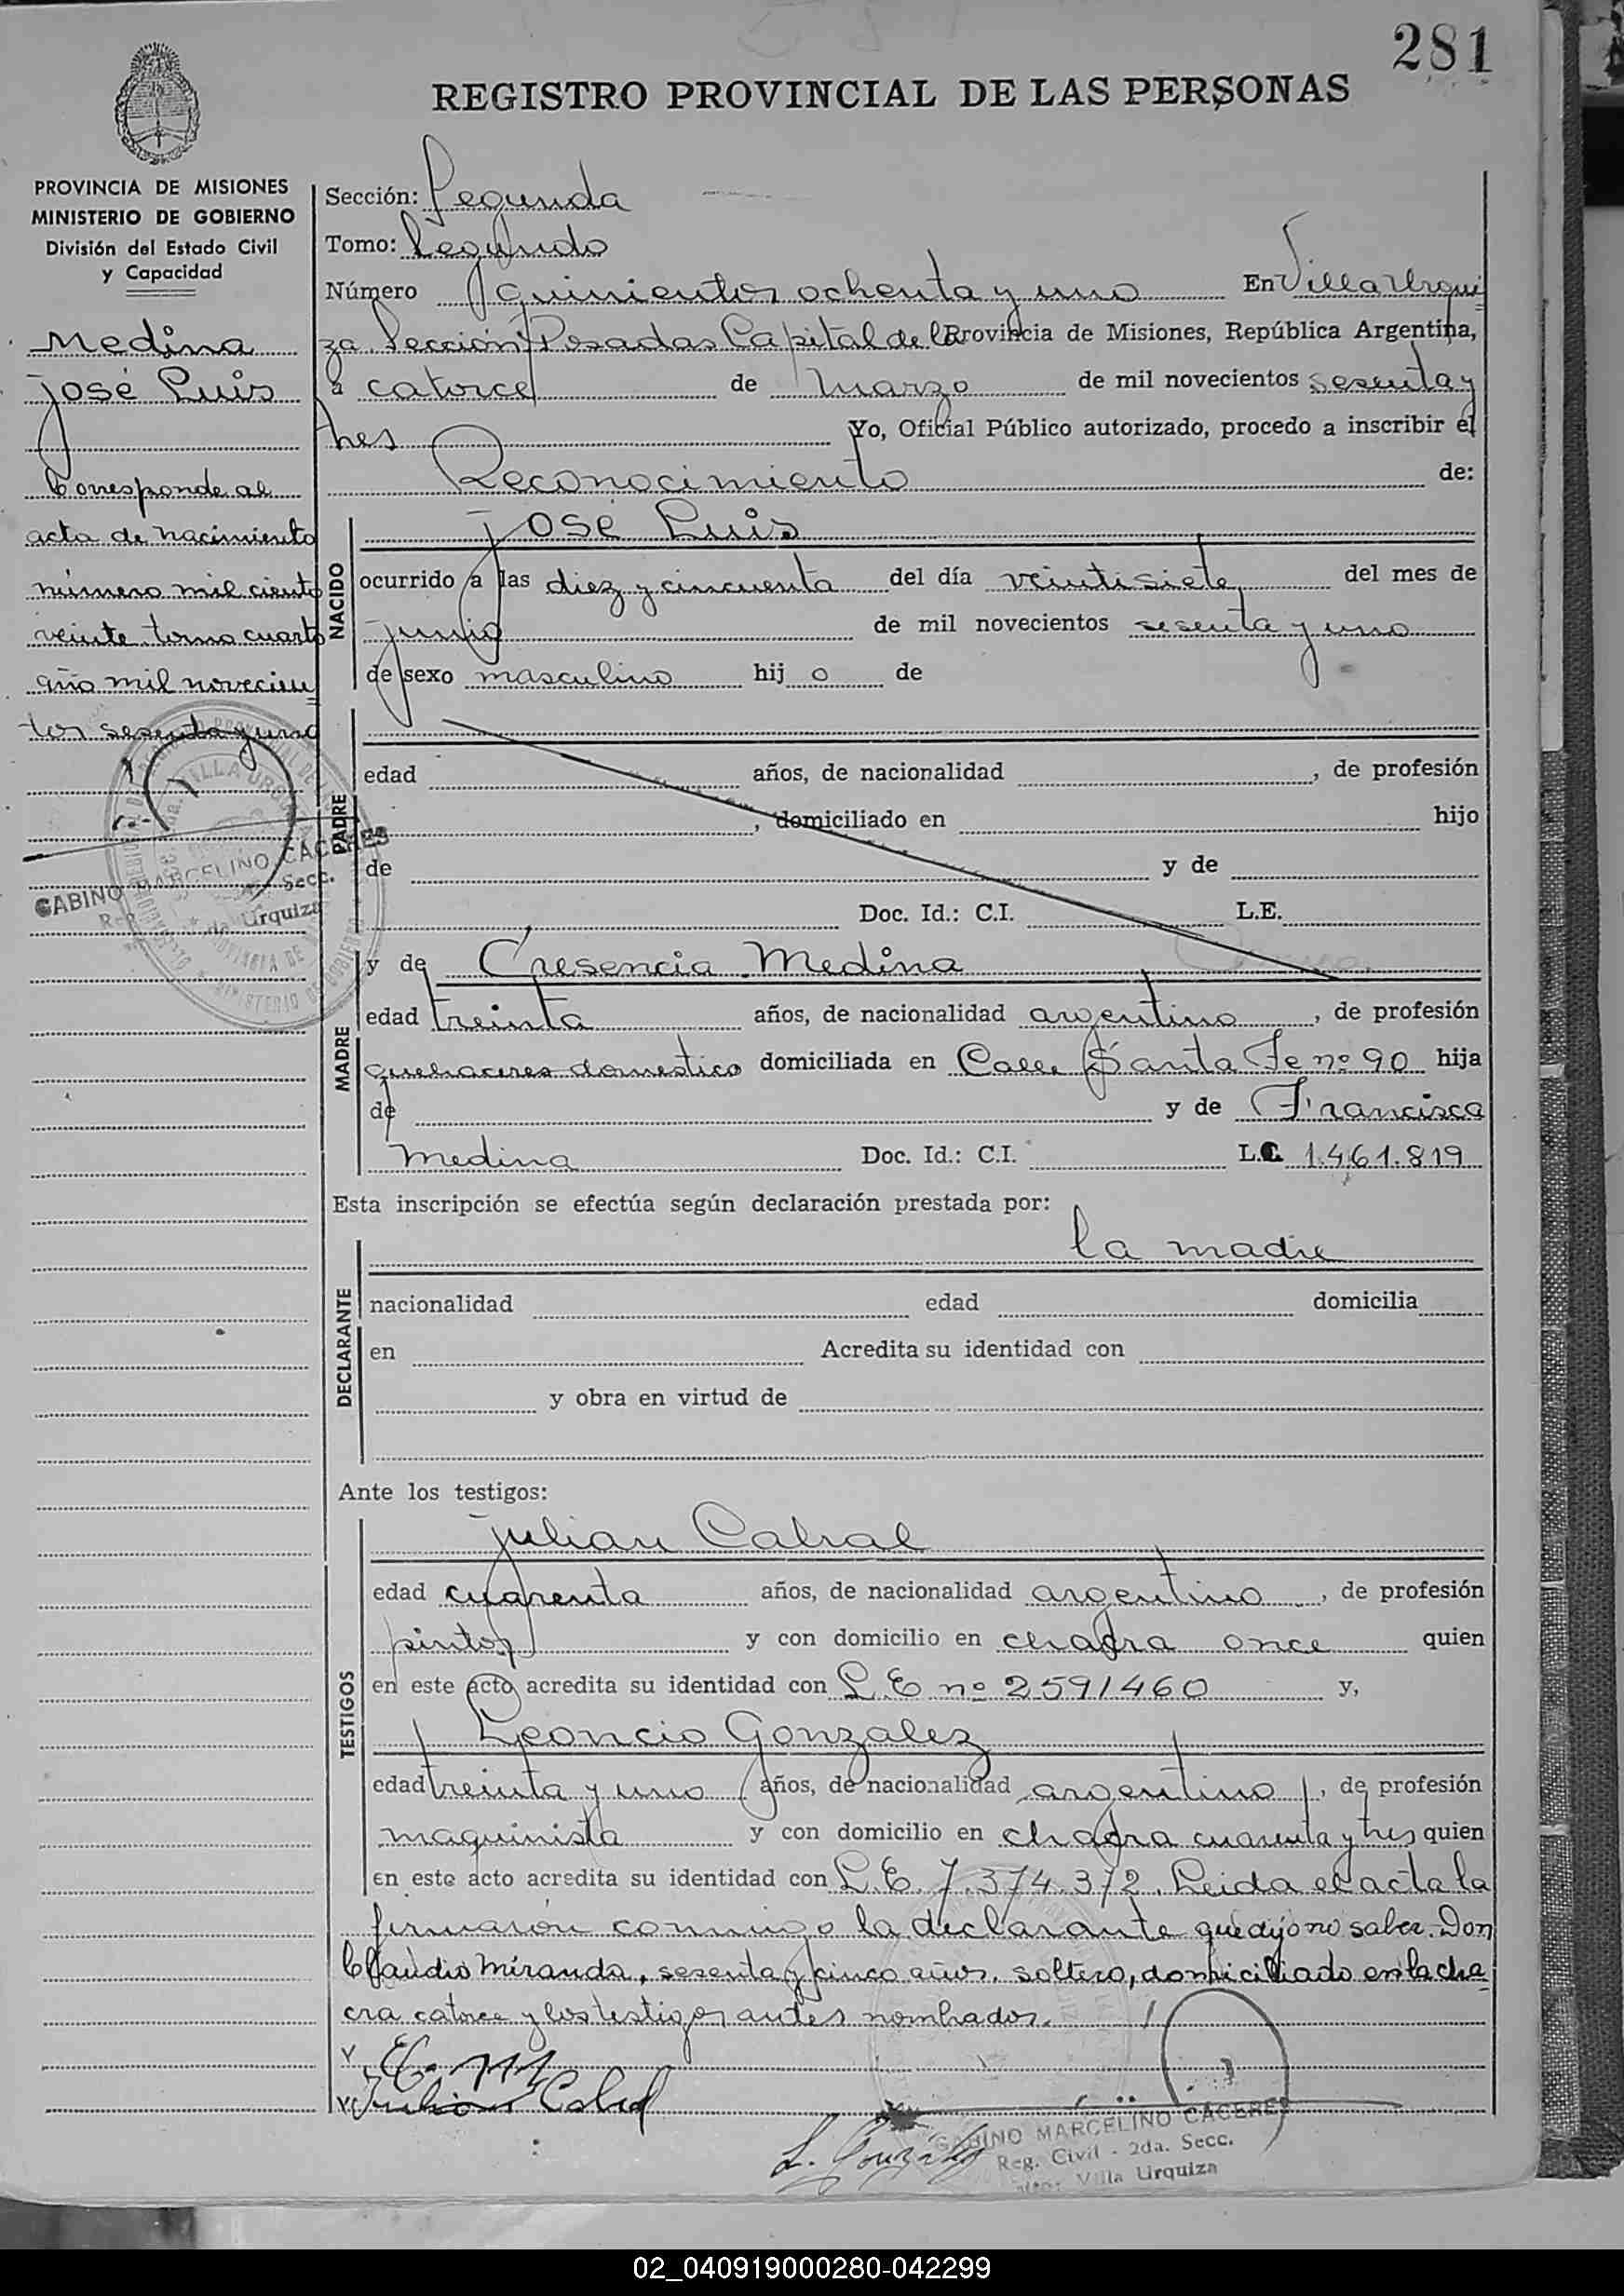 281
REGISTRO PROVINCIAL DE LAS PERSONAS
PROVINCIA DE MISIONES
MINISTERIO DE GOBIERNO
División del Estado Civil
y Capacidad
Medina
José Luis
Corresponde al
acta de nacimiento
número mil ciento
veinte tomo cuarto
año mil novecien
tos sesenta y uno
GABINO MARCELINO CACERES
Secc.
Urquiza
Sección: Segunda
Tomo: Segundo
Número quinientos ochenta y uno En Villa Urqui
za Sección Posadas Capital de la Provincia de Misiones, República Argentina,
a catorce de marzo de mil novecientos sesenta y
tres Yo, Oficial Público autorizado, procedo a inscribir el
Reconocimiento de:
NACIDO
José Luis
ocurrido a las diez y cincuenta del día veintisiete del mes de
junio de mil novecientos sesenta y uno
de sexo masculino hij o de
PADRE
edad años, de nacionalidad , de profesión
, domiciliado en hijo
de y de
Doc. Id.: C.I. L.E.
MADRE
y de Cresencia Medina
edad treinta años, de nacionalidad argentina, de profesión
quehaceres domestico domiciliada en Calle Santa Fe nº 90 hija
de y de Francisca
Medina Doc. Id.: C.I. L.C. 1.461.819
Esta inscripción se efectúa según declaración prestada por:
DECLARANTE
la madre
nacionalidad edad domicilia
en Acredita su identidad con
y obra en virtud de
Ante los testigos:
TESTIGOS
Julian Cabral
edad cuarenta años, de nacionalidad argentino, de profesión
pintor y con domicilio en chacra once quien
en este acto acredita su identidad con L E nº 2591460 y,
Leoncio Gonzalez
edad treinta y uno años, de nacionalidad argentino, de profesión
maquinista y con domicilio en chacra cuarenta y tres quien
en este acto acredita su identidad con L.E. 7.374.372. Leida el acta la
firmaron conmigo la declarante que dijo no saber. Don
Claudio Miranda, sesenta y cinco años, soltero, domiciliado en la cha
cra catorce y los testigos antes nombrados.
Julian Cabral
L. Gonzalez
GABINO MARCELINO CACERES
Reg. Civil - 2da. Secc.
Villa Urquiza
02_040919000280-042299